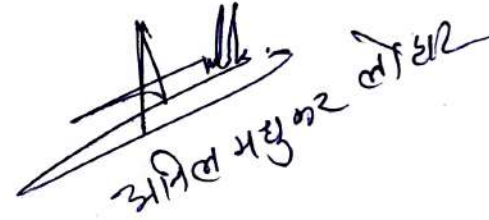 अनिल मधुकर लोहार